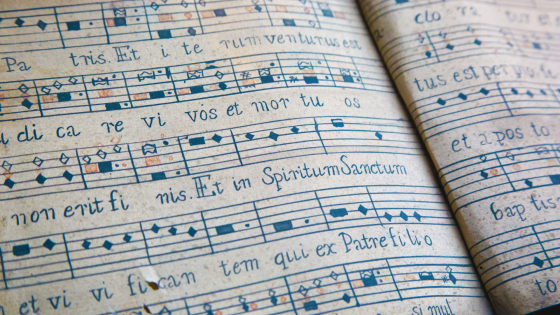 Pa tris. Et i te rum venturus est
di ca re vi vos et mor tu os
non erit fi nis. Et in Spiritum Sanctum
et vi vi fi can tem qui ex Patre filio
simul
clo
tus est per
et a pos to
bap tis
to